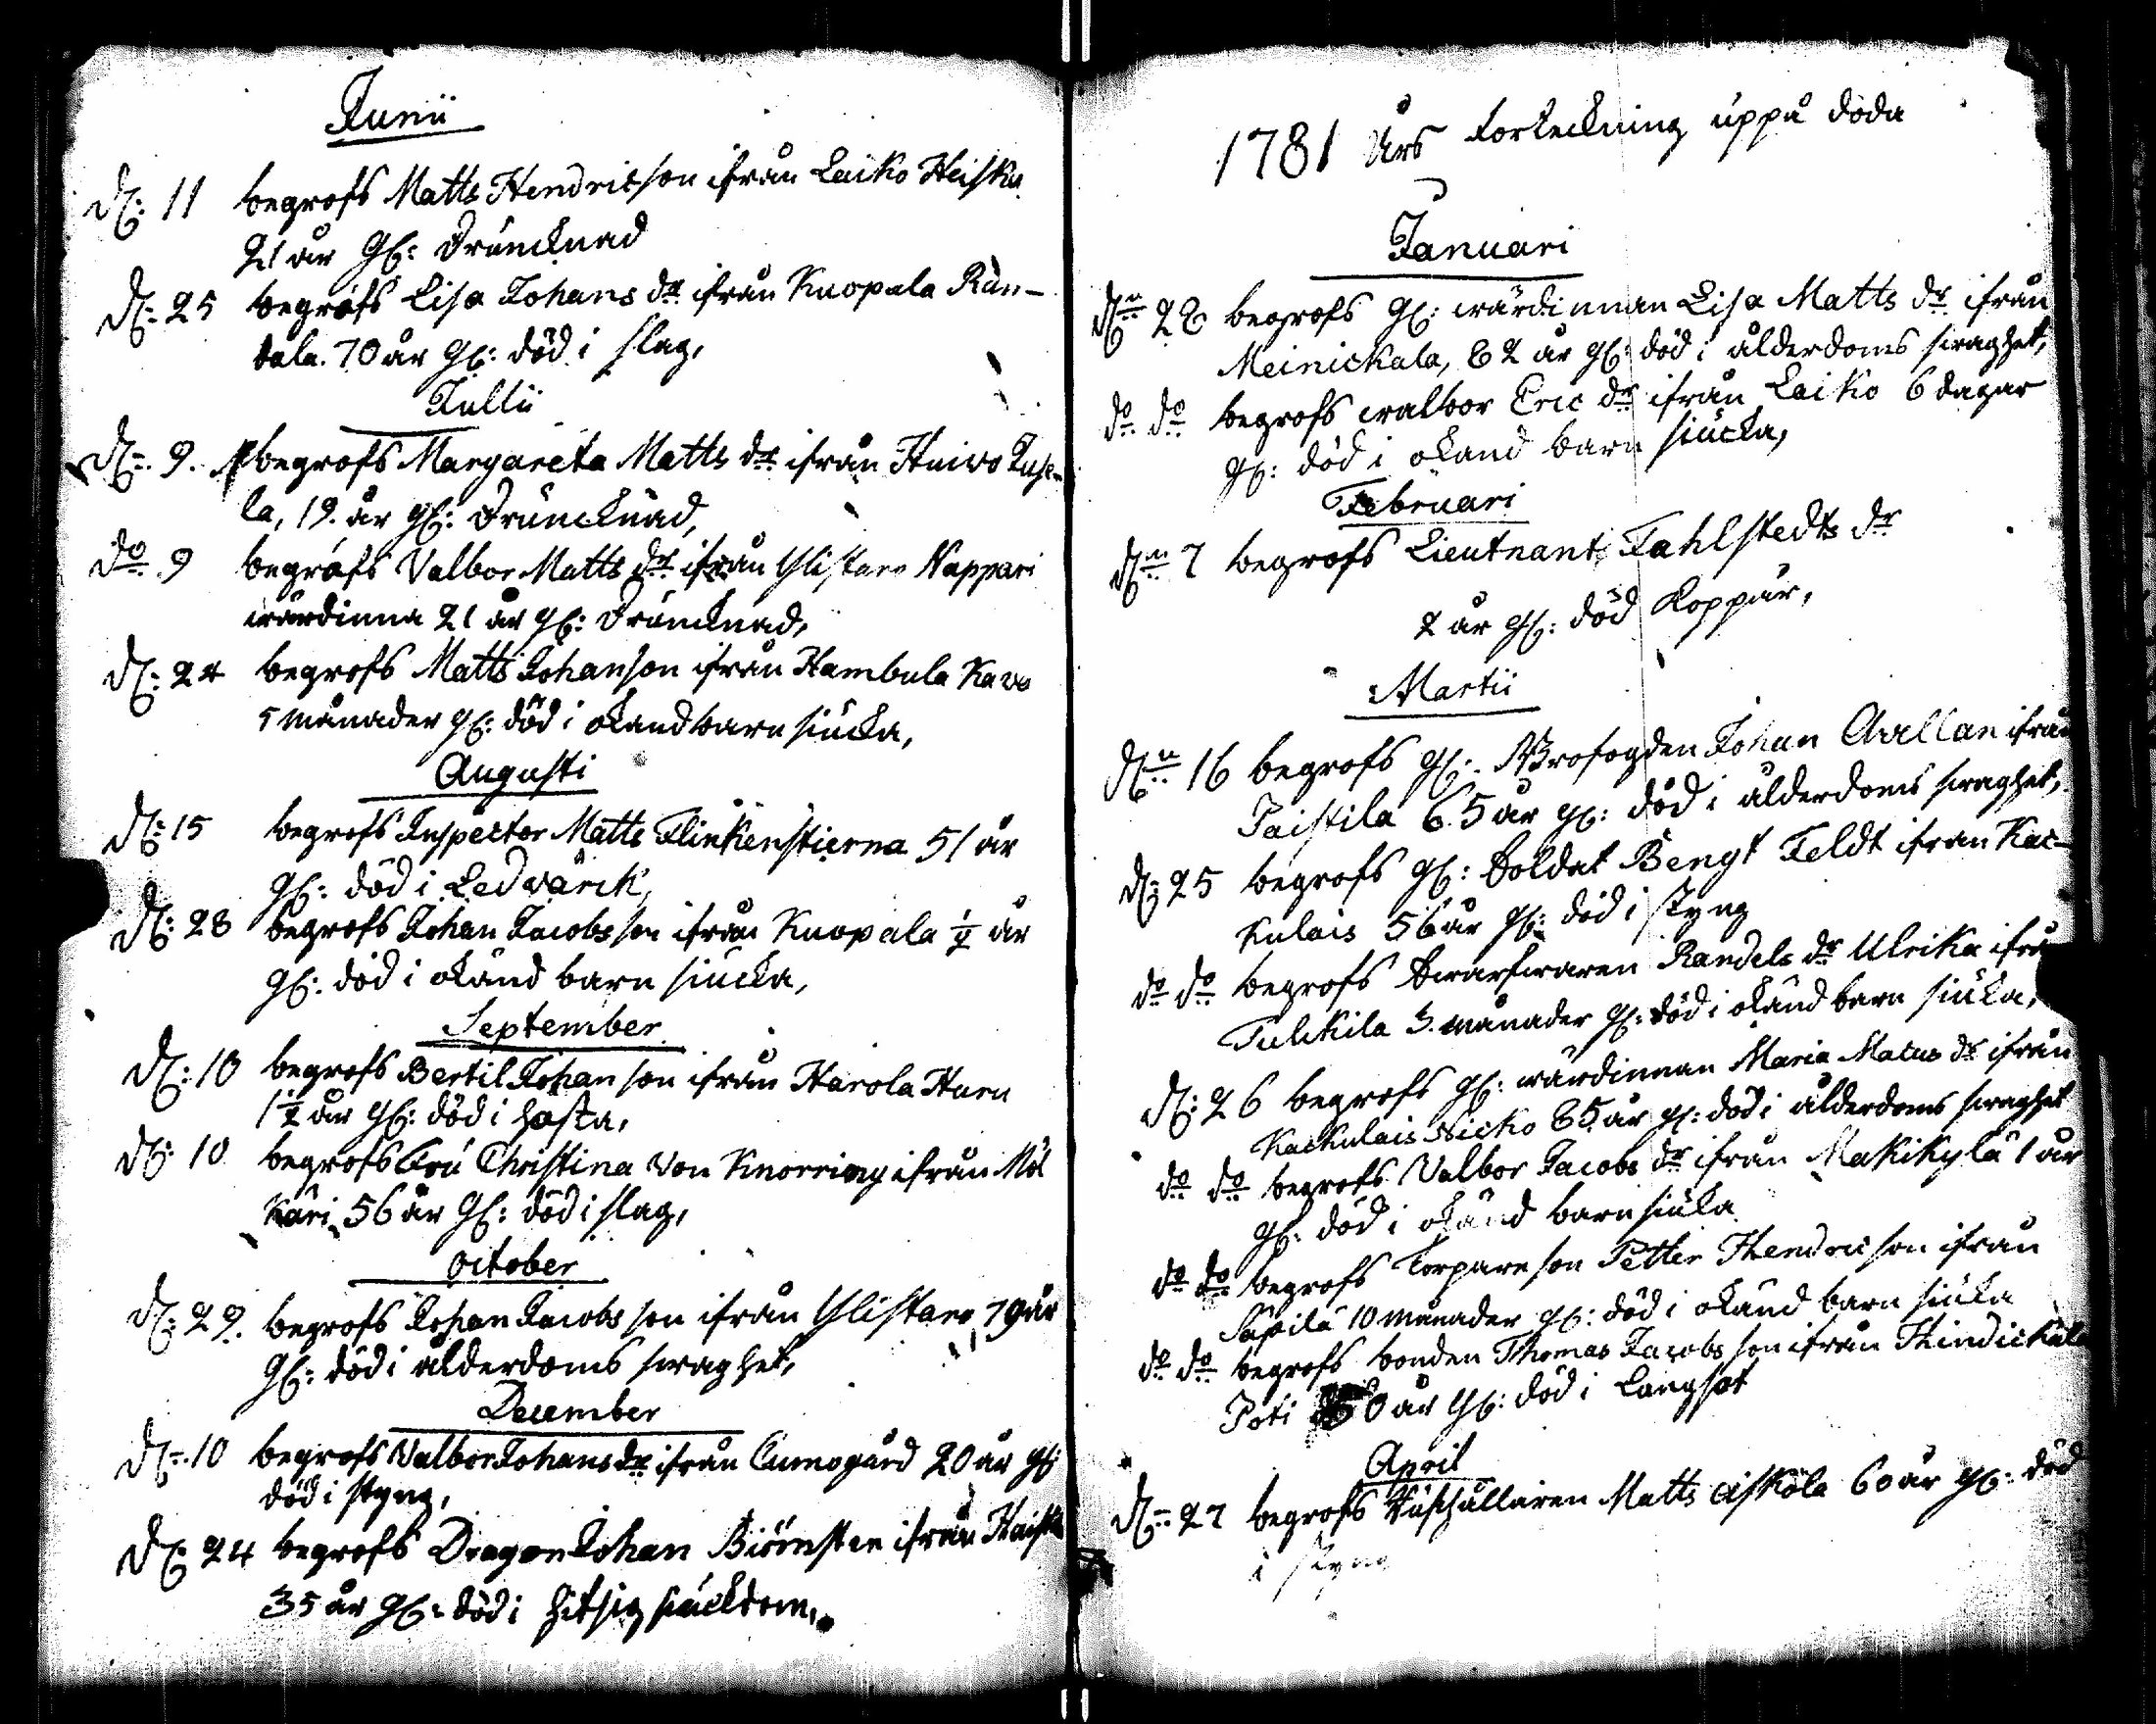 Junii
d: 11 begrofs Matts Hendricson ifrån Laiko Heiska
21 år gl: Druncknad
d: 25 begrofs Lisa Johans dr ifrån Kuopala Ran-
tala. 70 år gl: död i slag,
Jullii
d: 9. begrofs Margareta Matts dr ifrån Huivo
la, 19. år gl: Druncknad,
do 9 begrofs Valbor Matts dr ifrån Ylistaro Nappari
wärdinna 21 år gl: Druncknad,
d: 24 begrofs Matts Johanson ifrån Hambula Kavo
5 månader gl: död i okand barn siucka,
Augusti
d: 15 begrofs Inspector Matts Flinkenstierna 51 år
gl: död i Ledvärck,
d: 28 begrofs Johan Jacobsson ifrån Kuopala ½ år
gl: död i okänd barn siucka,
September
d: 10 begrofs Bertil Johanson ifrån Harola Haru
1½ år gl: död i hosta,
d: 10 begrofs Fru Christina Von Knorring ifrån Möl
käri 56 år gl: död i slag,
October
d: 29. begrofs Johan Jacobsson ifrån Ylistaro 79 år
gl: död i ålderdoms swaghet,
December
d: 10 begrofs Valbor Johans dr ifrån Cumogård 20 år gl:
död i styng,
d: 24 begrofs Dragon Johan Biörnsten ifrån
35 år gl: död i hitsig siuckdom,
1781 Års Forteckning uppå döda
Januari
dn 28 begrofs gl: wärdinnan Lisa Matts dr ifrån
Meinickala, 82 år gl: död i ålderdoms swaghet,
do do begrofs walbor Eric dr ifrån Laiko 6 dagar
gl: död i okand barn siucka,
Februari
dn 7 begrofs Lieutnants Fahlstedts dr
2 år gl: död Koppår,
Martii
dn 16 begrofs gl: Profogden Johan Avellan ifrån
Paistila 65 år gl: död i ålderdoms swaghet,
d: 25 begrofs gl: Soldat Bengt Feldt ifrån Kac-
kulais 56 år gl: död i styng
do do begrofs Swarfwaren Randels dr Ulrika ifrå
Tulckila 3. månader gl: död i okänd barn siucka,
d: 26 begrofs gl: wärdinnan Maria Matts dr ifrån
Kackulais Sicko 85 år gl: död i ålderdoms swaghet
do do begrofs Valbor Jacobs dr ifrån Makikylä 1 år
gl: död i okänd barn siucka
do do begrofs Torpare son Petter Hendricson ifrån
Säpilä 10 månader gl: död i okänd barn siucka
do do begrofs bonden Thomas Jacobsson ifrån Hindickala
Poti 0 år gl: död i Langsot
April
d: 27 begrofs Rusthållaren Matts Askola 60 år gl: död
i styng